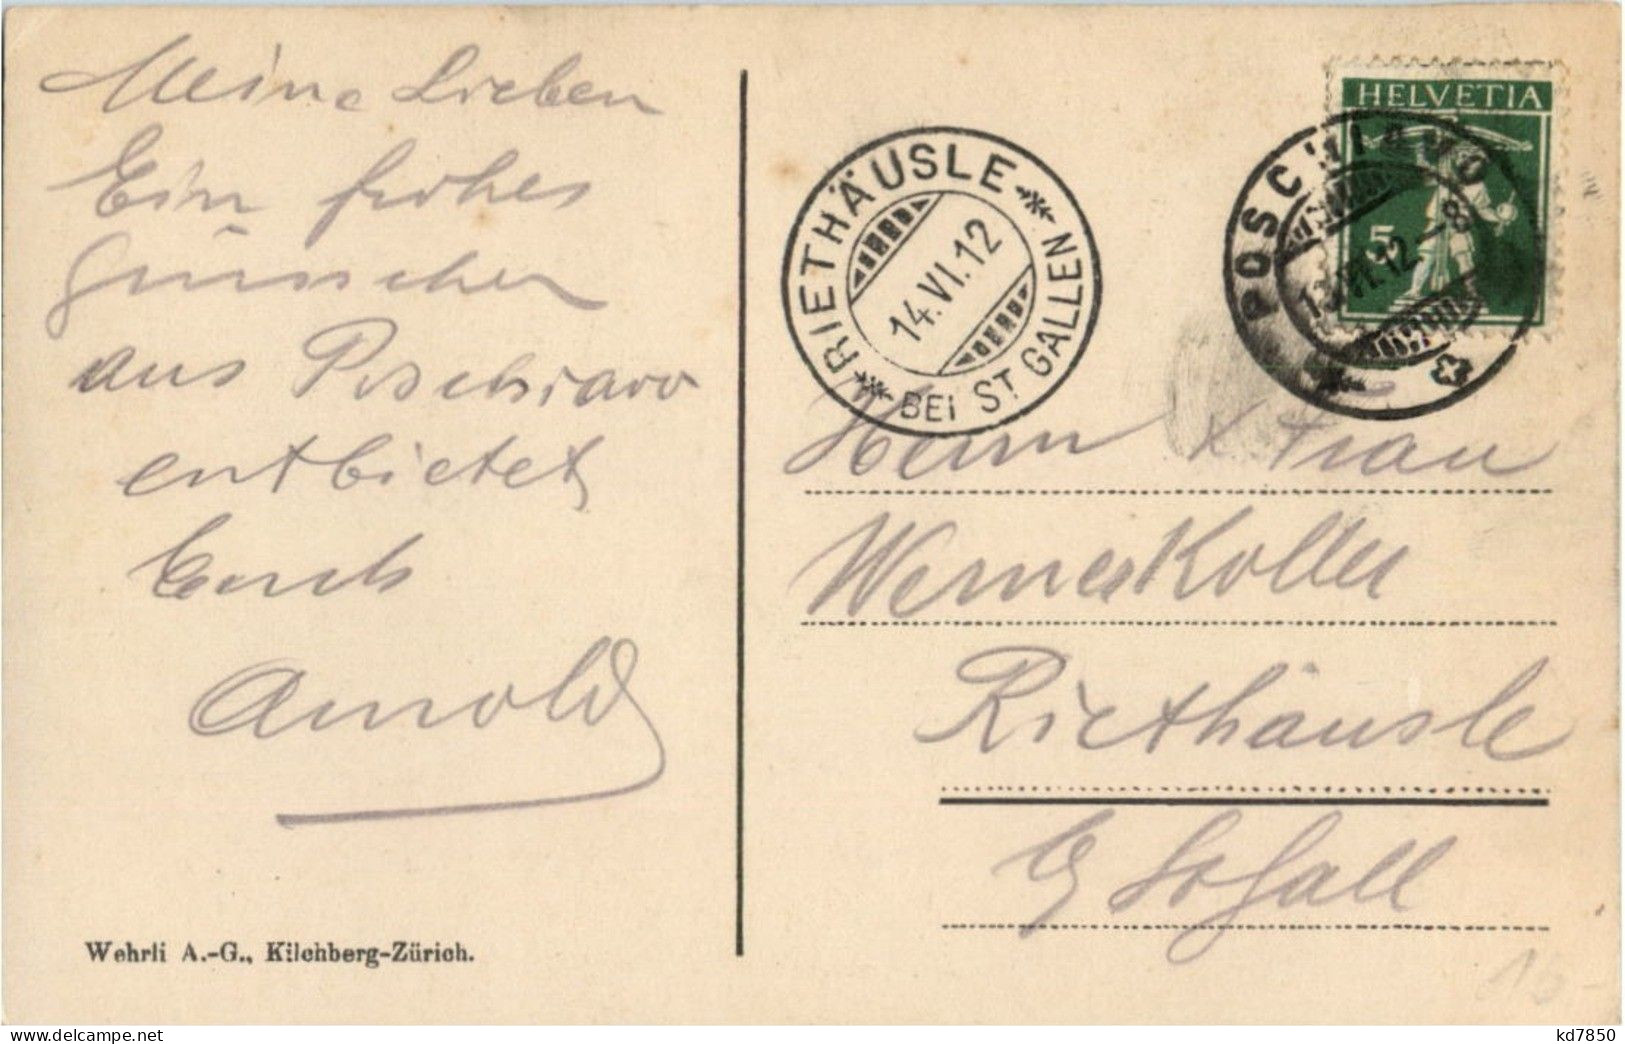 Meine Lieben
Ein frohes
aus Poschiavo
entbietet
Euch
Arnold
Wehrli A.-G., Kilchberg-Zürich.
HELVETIA
5
POSCHIAVO
VI.12.-8
RIETHÄUSLE
14.VI.12
BEI ST GALLEN
Herrn & Frau
Werner Koller
Riethäusle
St. Gall
kd7850